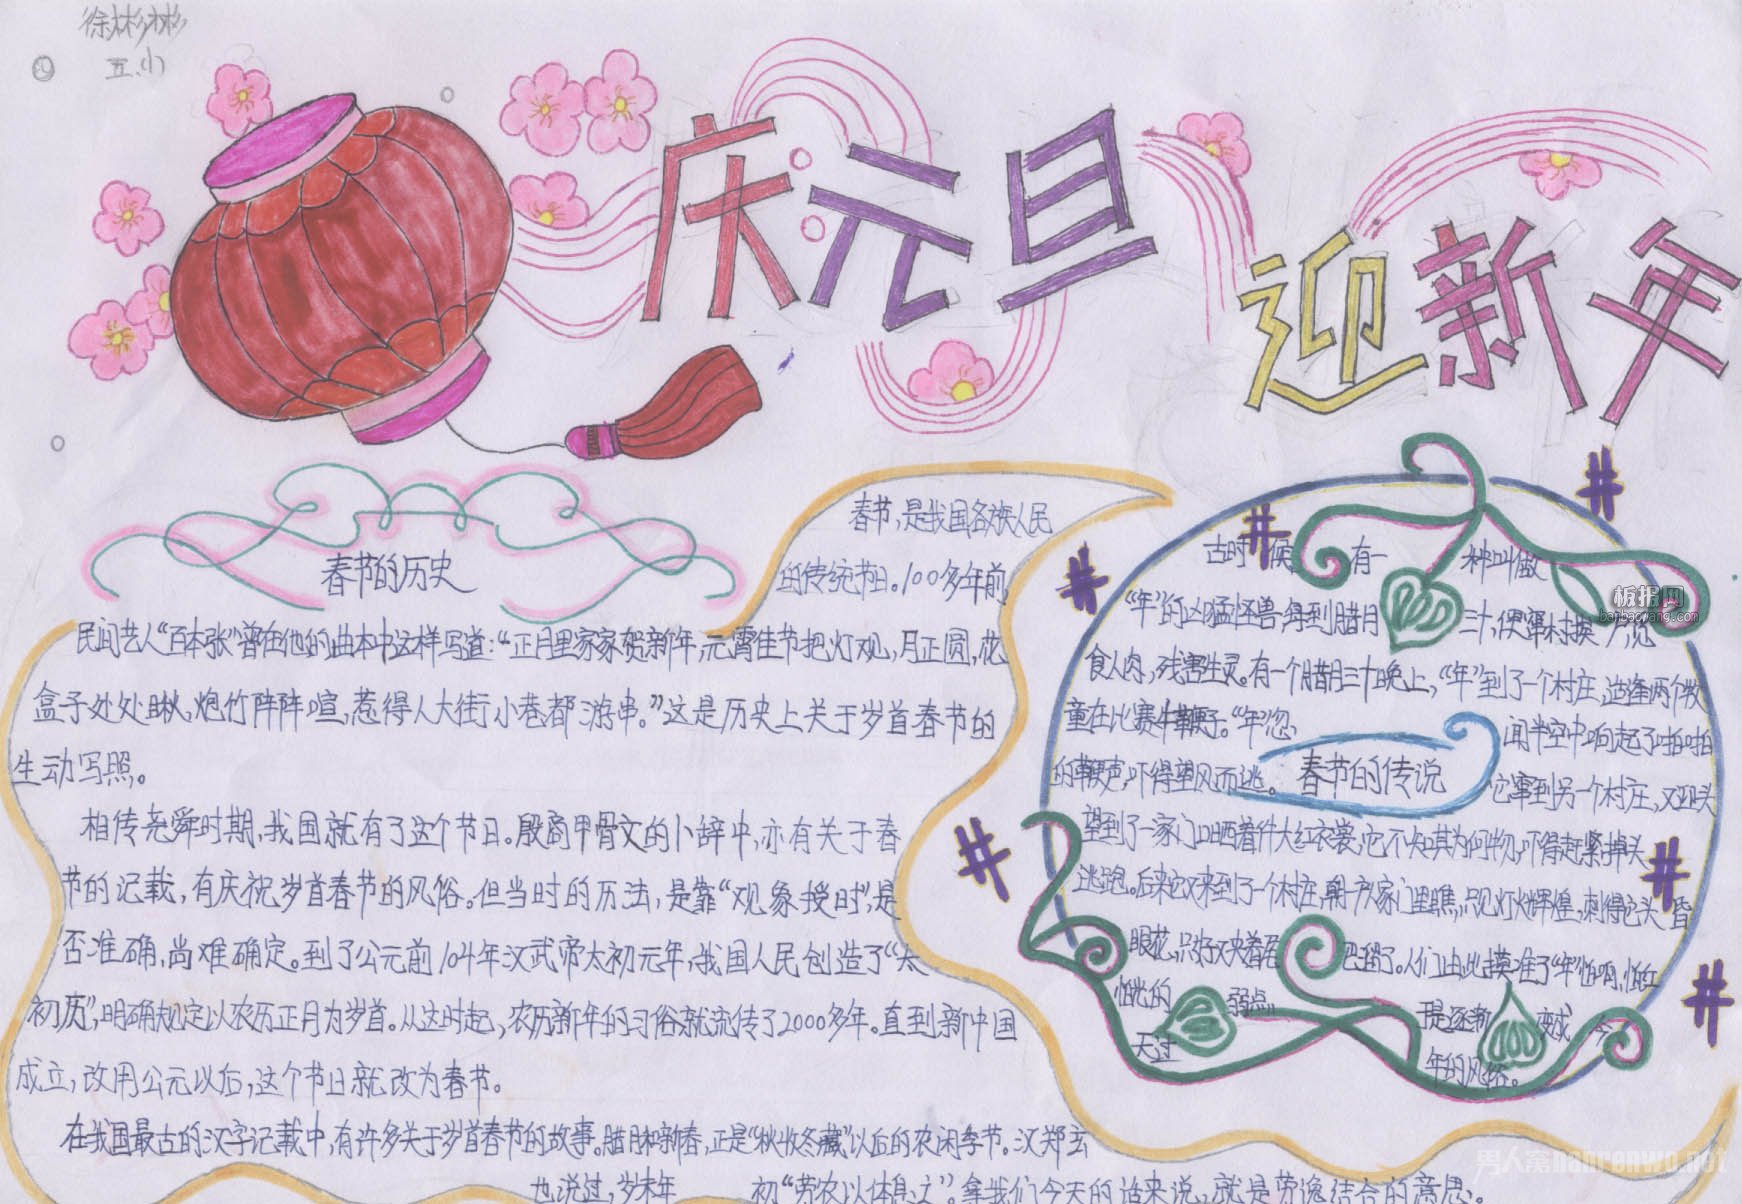 徐彬彬
五.小
庆元旦
迎新年
春节的历史
春节,是我国各族人民
的传统节日。100多年前
民间艺人“百本张”曾在他的曲本中这样写道:“正月里家家贺新年,元宵佳节把灯观,月正圆,花
盒子处处瞅,炮竹阵阵喧,惹得人大街小巷都游串。”这是历史上关于岁首春节的
生动写照。
相传尧舜时期,我国就有了这个节日。殷商甲骨文的卜辞中,亦有关于春
节的记载,有庆祝岁首春节的风俗。但当时的历法,是靠“观象授时”,是
否准确,尚难确定。到了公元前104年汉武帝太初元年,我国人民创造了“太
初历”,明确规定以农历正月为岁首。从这时起,农历新年的习俗就流传了2000多年。直到新中国
成立,改用公元以后,这个节日就改为春节。
在我国最古的汉字记载中,有许多关于岁首春节的故事。腊月和新春,正是“秋收冬藏”以后的农闲季节。汉郑玄
也说过,岁末年初“劳农以休息之”。拿我们今天的话来说,就是劳逸结合的意思。
春节的传说
古时候有一种叫做
“年”的凶猛怪兽,每到腊月三十,便窜村挨户,觅
食人肉,残害生灵。有一个腊月三十晚上,“年”到了一个村庄,适逢两个牧
童在比赛牛鞭子。“年”忽闻半空中响起了啪啪
的鞭声,吓得望风而逃。它窜到另一个村庄,又迎头
望到了一家门口晒着件大红衣裳,它不知其为何物,吓得赶紧掉头
逃跑。后来它又来到了一个村庄,朝一户家门里瞧,只见灯火辉煌,刺得它头昏
眼花,只好又夹着尾巴溜了。人们由此摸准了“年”怕响,怕红
怕光的弱点于是逐渐变成今
天过年的风俗。
板报网
banbaowang.com
男人窝nanrenwo.net